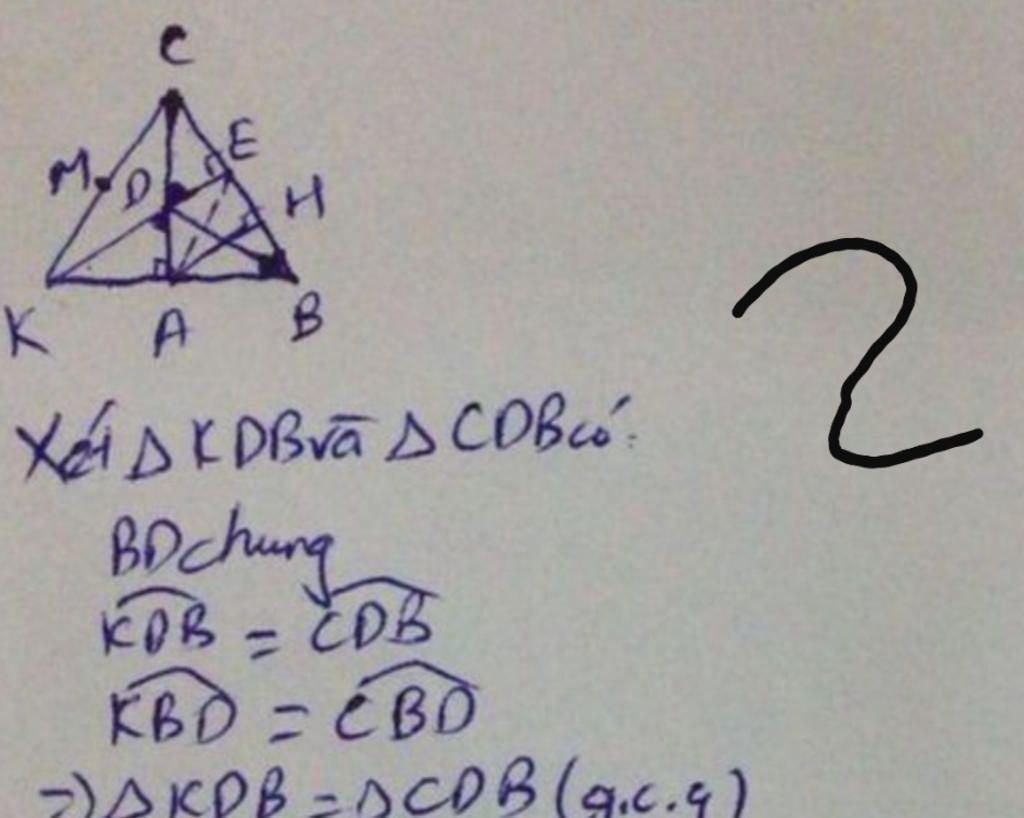 C
M D E H
K A B
2
Xét Δ KDB và Δ CDB có:
BD chung
KDB = CDB
KBD = CBD
=> Δ KDB = Δ CDB (g.c.g)